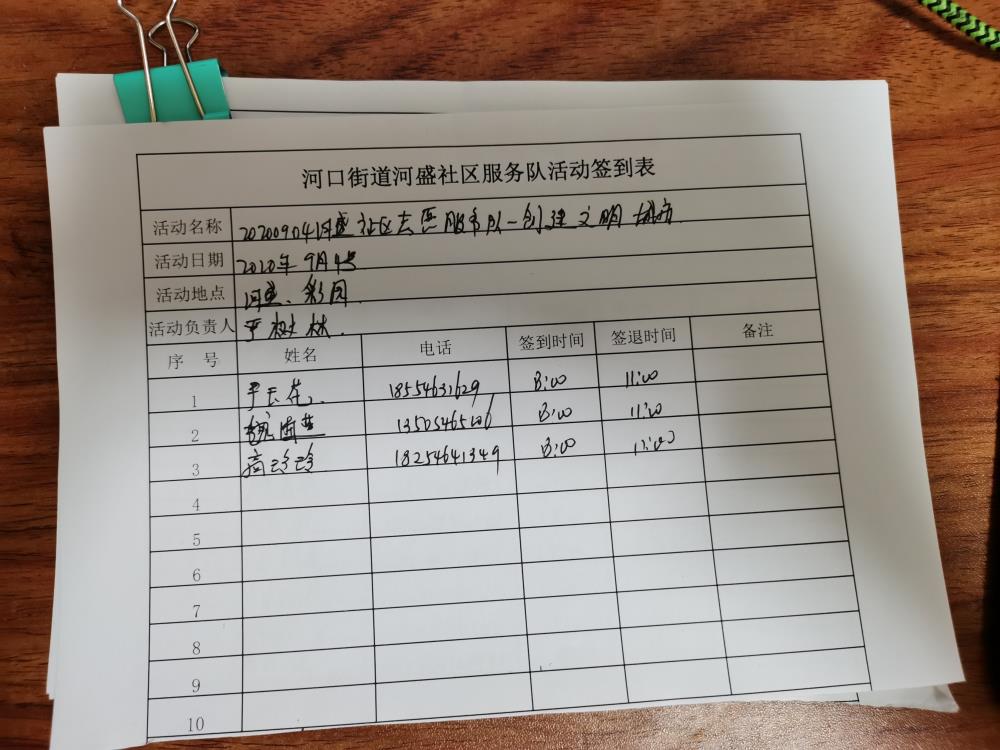 河口街道河盛社区服务队活动签到表
活动名称 20200904河盛社区志愿服务队一创建文明城市
活动日期 2020年9月4号
活动地点 河盛、彩园
活动负责人 树林
序 号 姓名 电话 签到时间 签退时间 备注
1 18554631629 8:00 11:00
2 13505465206 8:00 11:00
3 商珍珍 18254641349 8:00 11:00
4
5
6
7
8
9
10